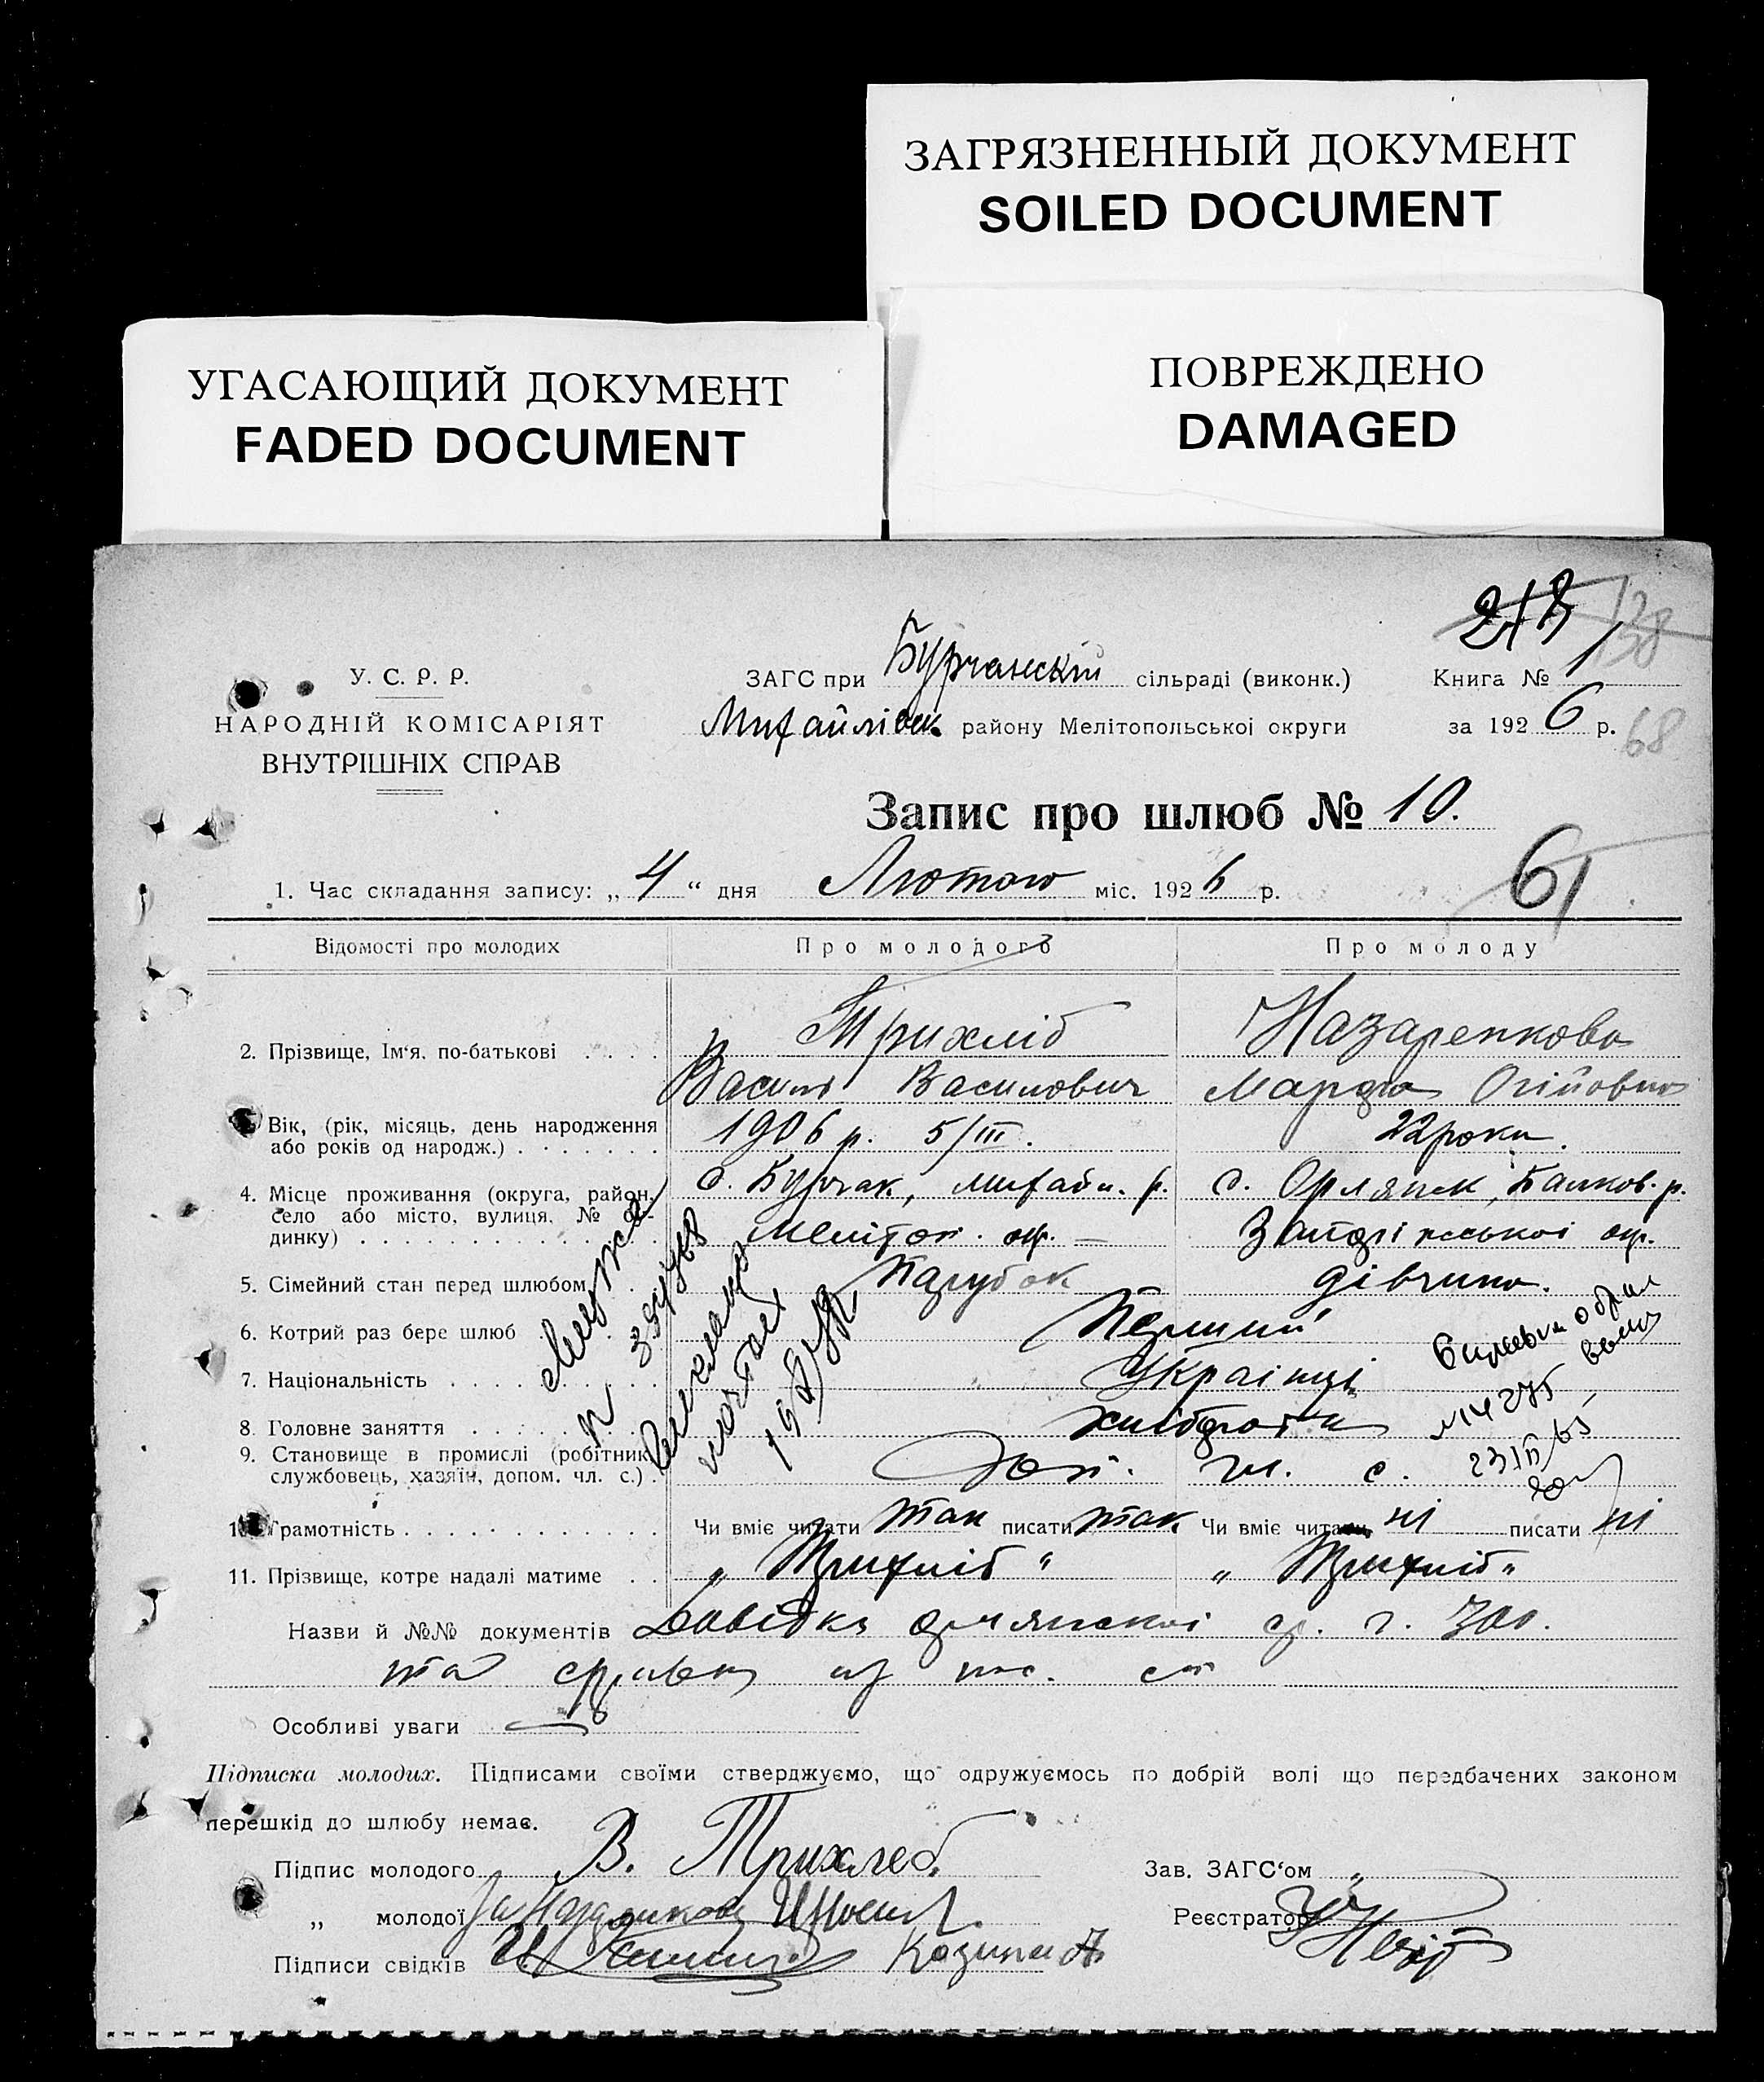 ЗАГРЯЗНЕННЫЙ ДОКУМЕНТ
SOILED DOCUMENT
УГАСАЮЩИЙ ДОКУМЕНТ
FADED DOCUMENT
ПОВРЕЖДЕНО
DAMAGED
У. С. Р. Р.
НАРОДНІЙ КОМІСАРІЯТ
ВНУТРІШНІХ СПРАВ
ЗАГС при Бурчанскій сільраді (виконк.)
Михайлівск. району Мелітопольської округи
Книга № 1
за 1926 р.
68
Запис про шлюб № 10.
61
1. Час складання запису: „ 4 “ дня Лютого міс. 1926 р.
Відомості про молодих Про молодого Про молоду
2. Прізвище, Ім'я, по-батькові Трихліб Назаренкова
Василь Василович Марфа
Вік, (рік, місяць, день народження або років од народж.) 1906 р. 5/III. 22 роки.
4. Місце проживання (округа, район, село або місто, вулиця, № будинку) с. Бурчак, Михайл. р. с. Орлянск, Балков. р.
Меліто п. окр. — Запоріжської окр.
5. Сімейний стан перед шлюбом Парубок дівчина.
6. Котрий раз бере шлюб Перший
7. Національність Українці
8. Головне заняття хлібороби
9. Становище в промислі (робітник, службовець, хазяїн, допом. чл. с.) Доп. чл. с.
Грамотність Чи вміє читати так писати так Чи вміє читати ні писати ні
11. Прізвище, котре надалі матиме „ Трихліб “ „ Трихліб “
Назви й №№ документів Довідка орлянскої ср. г. 300.
та
Особливі уваги
Підписка молодих. Підписами своїми стверджуємо, що одружуємось по добрій волі що передбачених законом
перешкід до шлюбу немає.
Підпис молодого В. Трихлеб.
Зав. ЗАГС'ом
„ молодої
Реєстратор
Підписи свідків